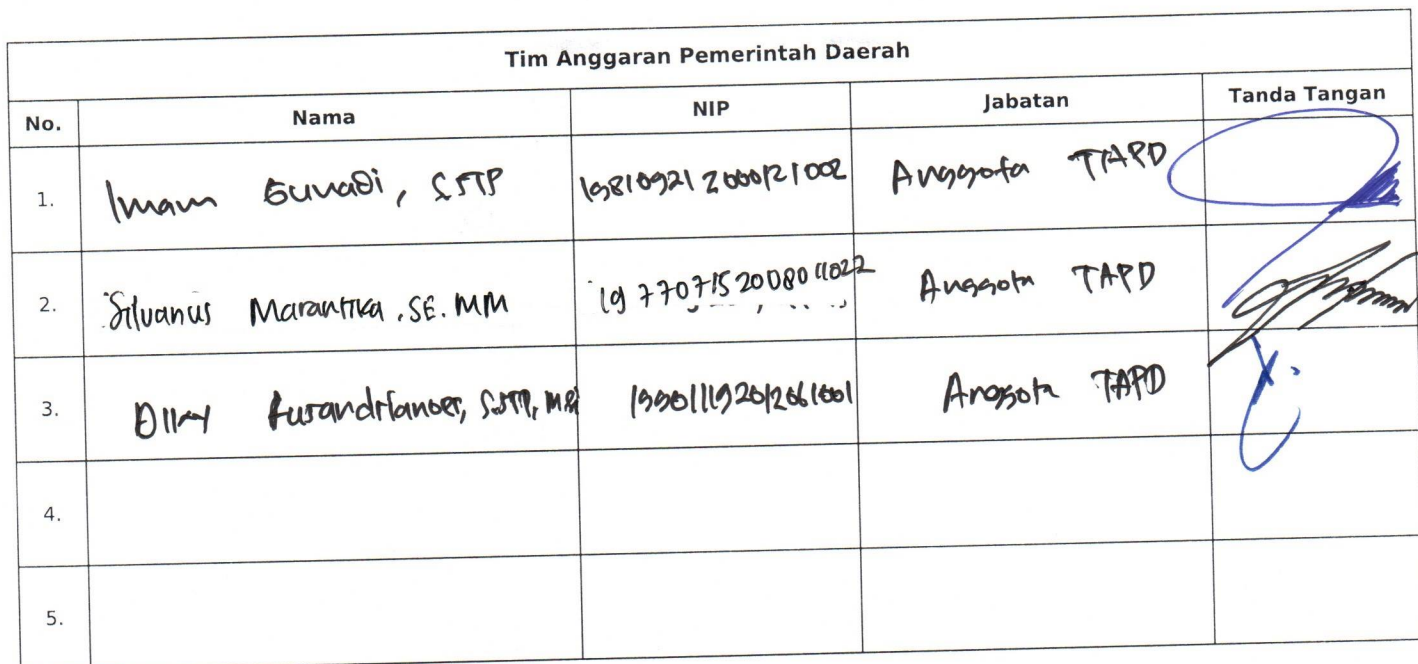 Tim Anggaran Pemerintah Daerah
No. Nama NIP Jabatan Tanda Tangan
1. Imam Gunadi, SSTP 198109212000121002 Anggota TAPD
2. Silvanus Marantika, SE. MM 197707152008041022 Anggota TAPD
3. S.STP, MSi 199011192012061001 Anggota TAPD
4.
5.